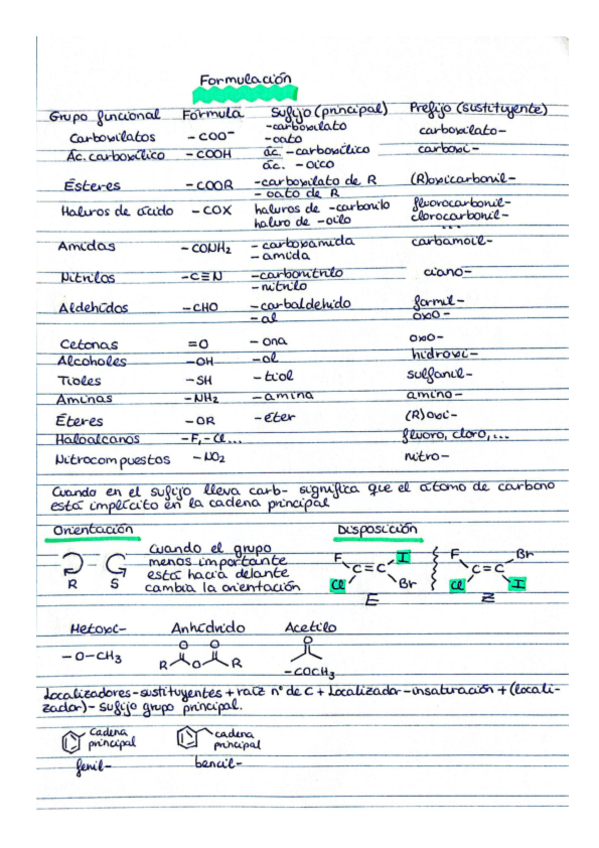 Formulación
Grupo funcional Fórmula Sufijo (principal) Prefijo (sustituyente)
Carboxilatos -COO⁻ -carboxilato carboxilato-
-oato
Ác. carboxílico -COOH ác. -carboxílico carboxi-
ác. -oico
Ésteres -COOR -carboxilato de R (R)oxicarbonil-
-oato de R
Haluros de ácido -COX haluros de -carbonilo fluorocarbonil-
haluro de -oilo clorocarbonil-
...
Amidas -CONH₂ -carboxamida carbamoil-
-amida
Nitrilos -C≡N -carbonitrilo ciano-
-nitrilo
Aldehídos -CHO -carbaldehido formil-
-al oxo-
Cetonas =O -ona oxo-
Alcoholes -OH -ol hidroxi-
Tioles -SH -tiol sulfanil-
Aminas -NH₂ -amina amino-
Éteres -OR -éter (R)oxi-
Haloalcanos -F, -Cl... fluoro, cloro,...
Nitrocompuestos -NO₂ nitro-
Cuando en el sufijo lleva carb- significa que el átomo de carbono
está implícito en la cadena principal
Orientación Disposición
R S
Cuando el grupo
menos importante
está hacia delante
cambia la orientación
F I
C=C
Cl Br
E
F Br
C=C
Cl I
Z
Metoxi- Anhídrido Acetilo
-O-CH₃
O O
R O R
O
-COCH₃
Localizadores-sustituyentes + raíz nº de C + Localizador-insaturación + (locali-
zador)- sufijo grupo principal.
cadena
principal
fenil-
cadena
principal
bencil-